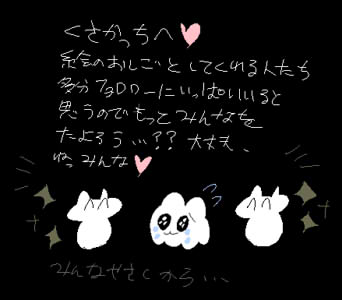 くさかっちへ♡
絵のおしごとしてくれる人たち
多分フォロワーにいっぱいいると
思うのでもっとみんなを
たよろう…?? 大丈夫、
ねっみんな♡
みんなやさしから…